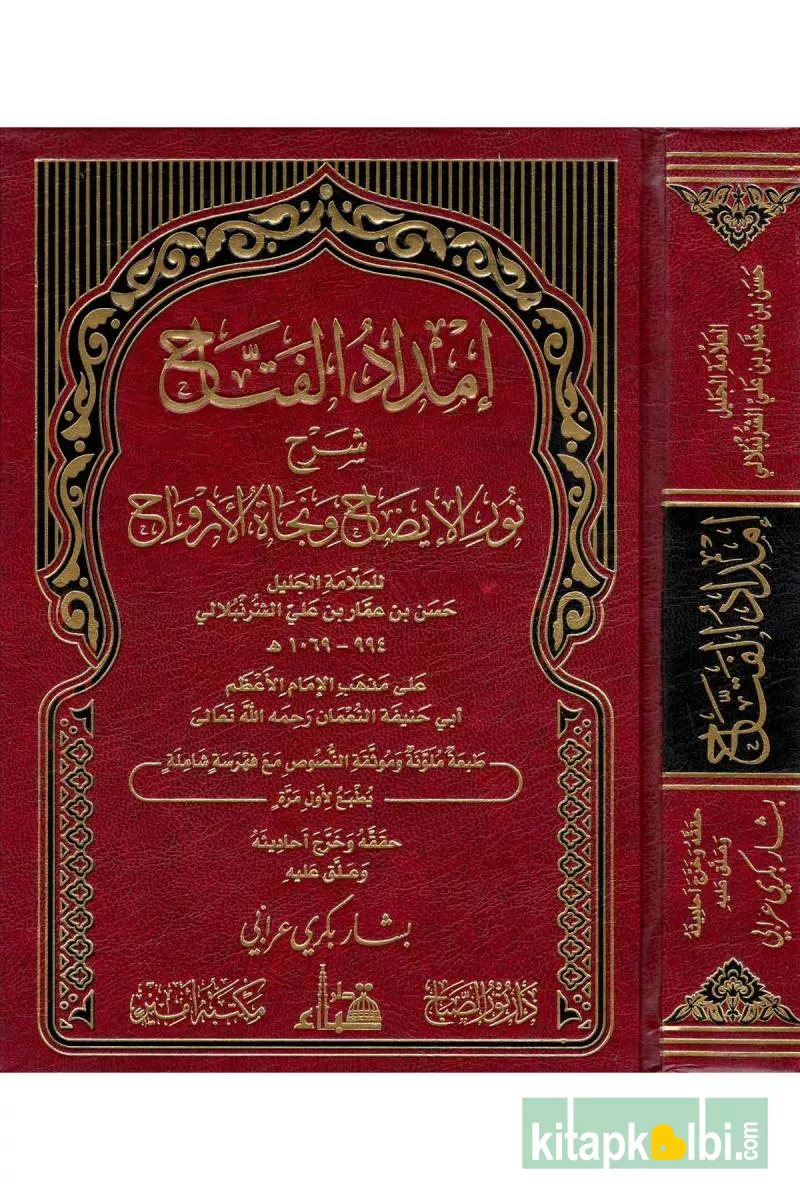 إمْدَادُ الفَتَّاح
شَرْح
نُورِ الإيضَاحِ وَنَجَاةِ الأَرْوَاحِ
للعَلّامَةِ الجَليل
حَسَن بن عمَّار بن عَليّ الشُّرُنْبُلالي
٩٩٤ - ١٠٦٩ هـ
عَلى مَذهَبِ الإمَامِ الأَعْظَم
أبي حَنيفَة النُّعْمَان رَحِمَه اللَّه تَعالى
طَبعَةٌ مُلَوَّنَةٌ وَمُوَثَّقَةِ النُّصُوصِ مَعَ فَهْرَسَةٍ شَامِلَةٍ
يُطْبَعُ لأوّلِ مَرَّةٍ
حقَقَّهُ وَخَرَّجَ أحَاديثَهُ
وَعَلَّق عَليهِ
بشار بكري عرابي
دَارُ نُورُ الصَّبَاح
دار قباء
مكتبة أمير
العَلّامَةِ الجَليل
حَسَن بن عمَّار بن عَليّ الشُّرُنْبُلالي
إمْدَادُ الفَتَّاح
حقَقَّهُ وَخَرَّجَ أحَاديثَهُ
وَعَلَّق عَليهِ
بشار بكري عرابي
kitapkalbi.com